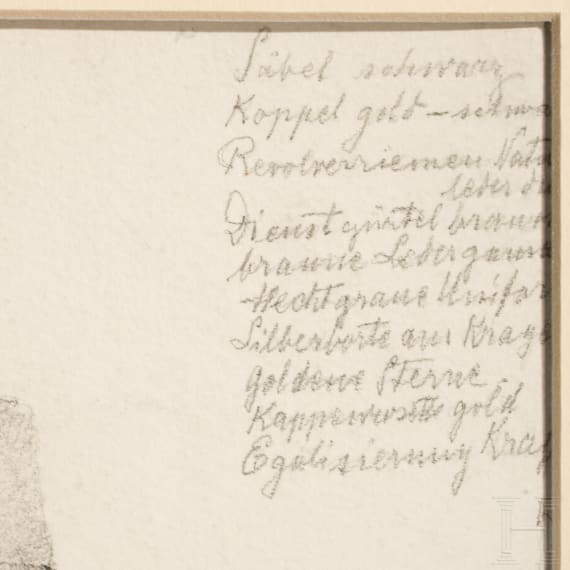 Säbel schwarz
Koppel gold – schwa
Revolverriemen Natu
leder du
Dienstgürtel braun
braune Ledergama
Hechtgraue Unifor
Silberborte am Krage
Goldene Sterne
Kappenrosette gold
Egalisierung Krag